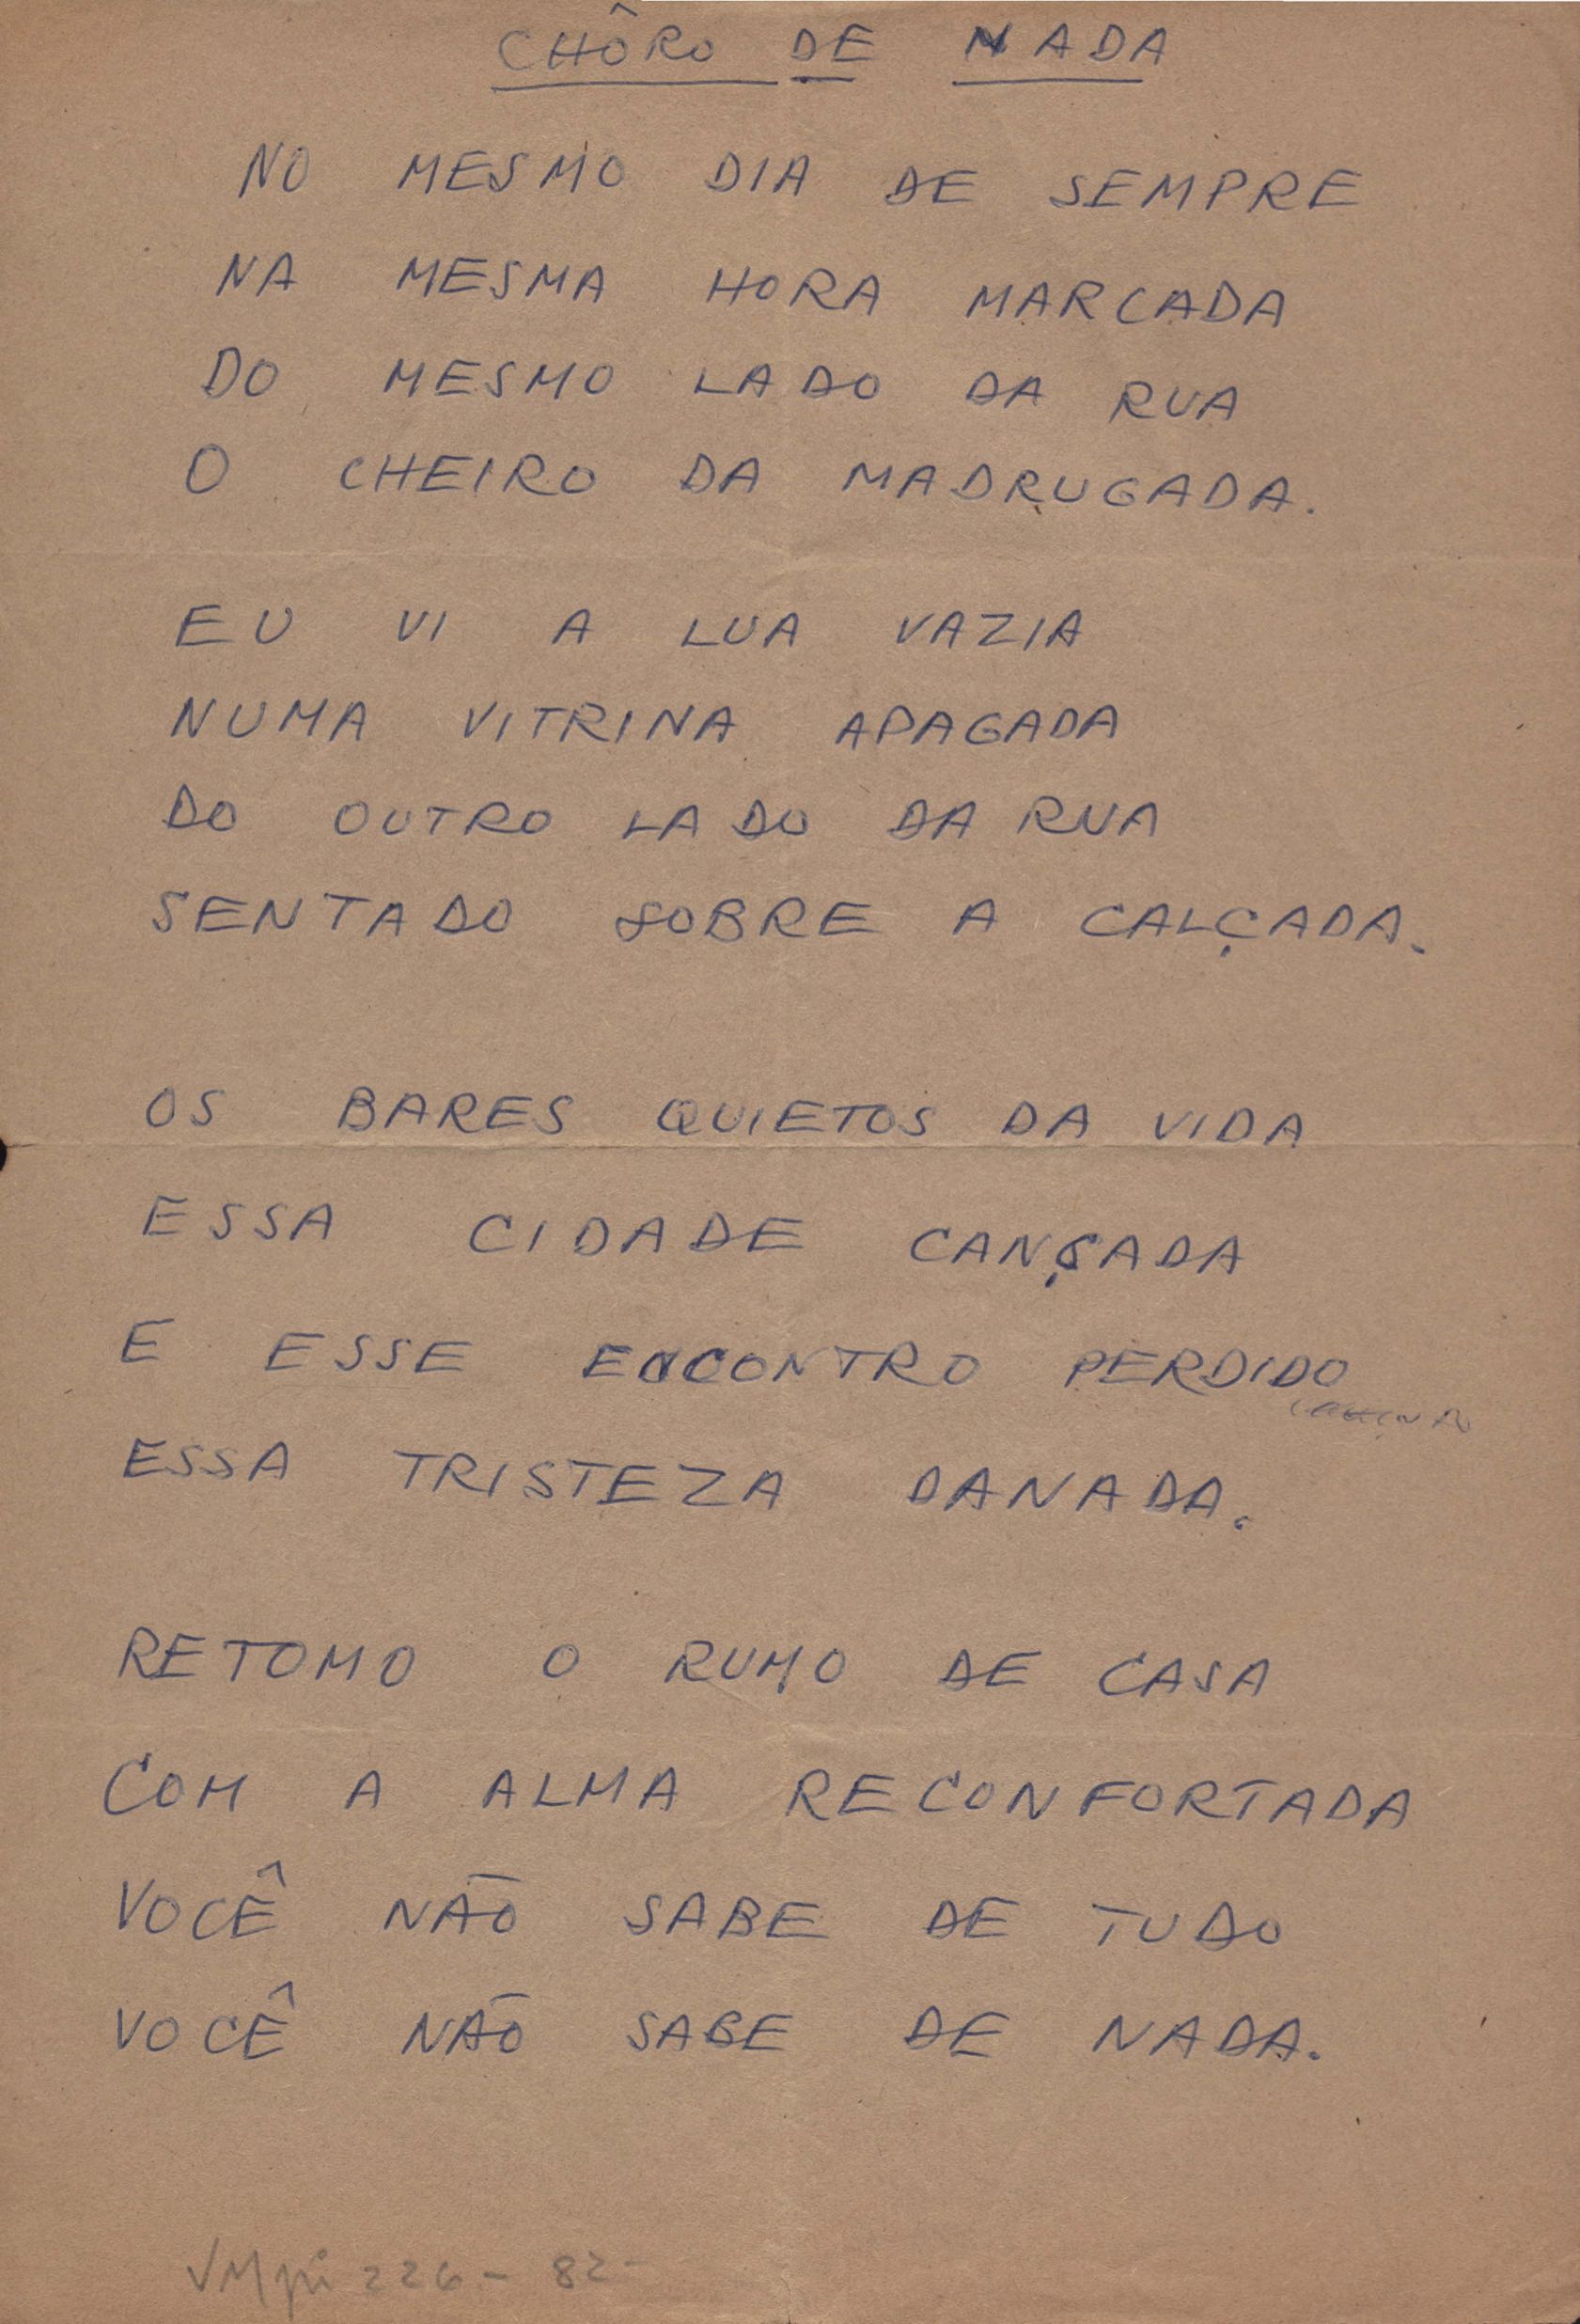 CHÔRO DE NADA
NO MESMO DIA DE SEMPRE
NA MESMA HORA MARCADA
DO MESMO LADO DA RUA
O CHEIRO DA MADRUGADA.
EU VI A LUA VAZIA
NUMA VITRINA APAGADA
DO OUTRO LADO DA RUA
SENTADO SOBRE A CALÇADA.
OS BARES QUIETOS DA VIDA
ESSA CIDADE CANÇADA
E ESSE ENCONTRO PERDIDO
ESSA TRISTEZA DANADA.
RETOMO O RUMO DE CASA
COM A ALMA RECONFORTADA
VOCÊ NÃO SABE DE TUDO
VOCÊ NÃO SABE DE NADA.
VMpi 226 - 82-